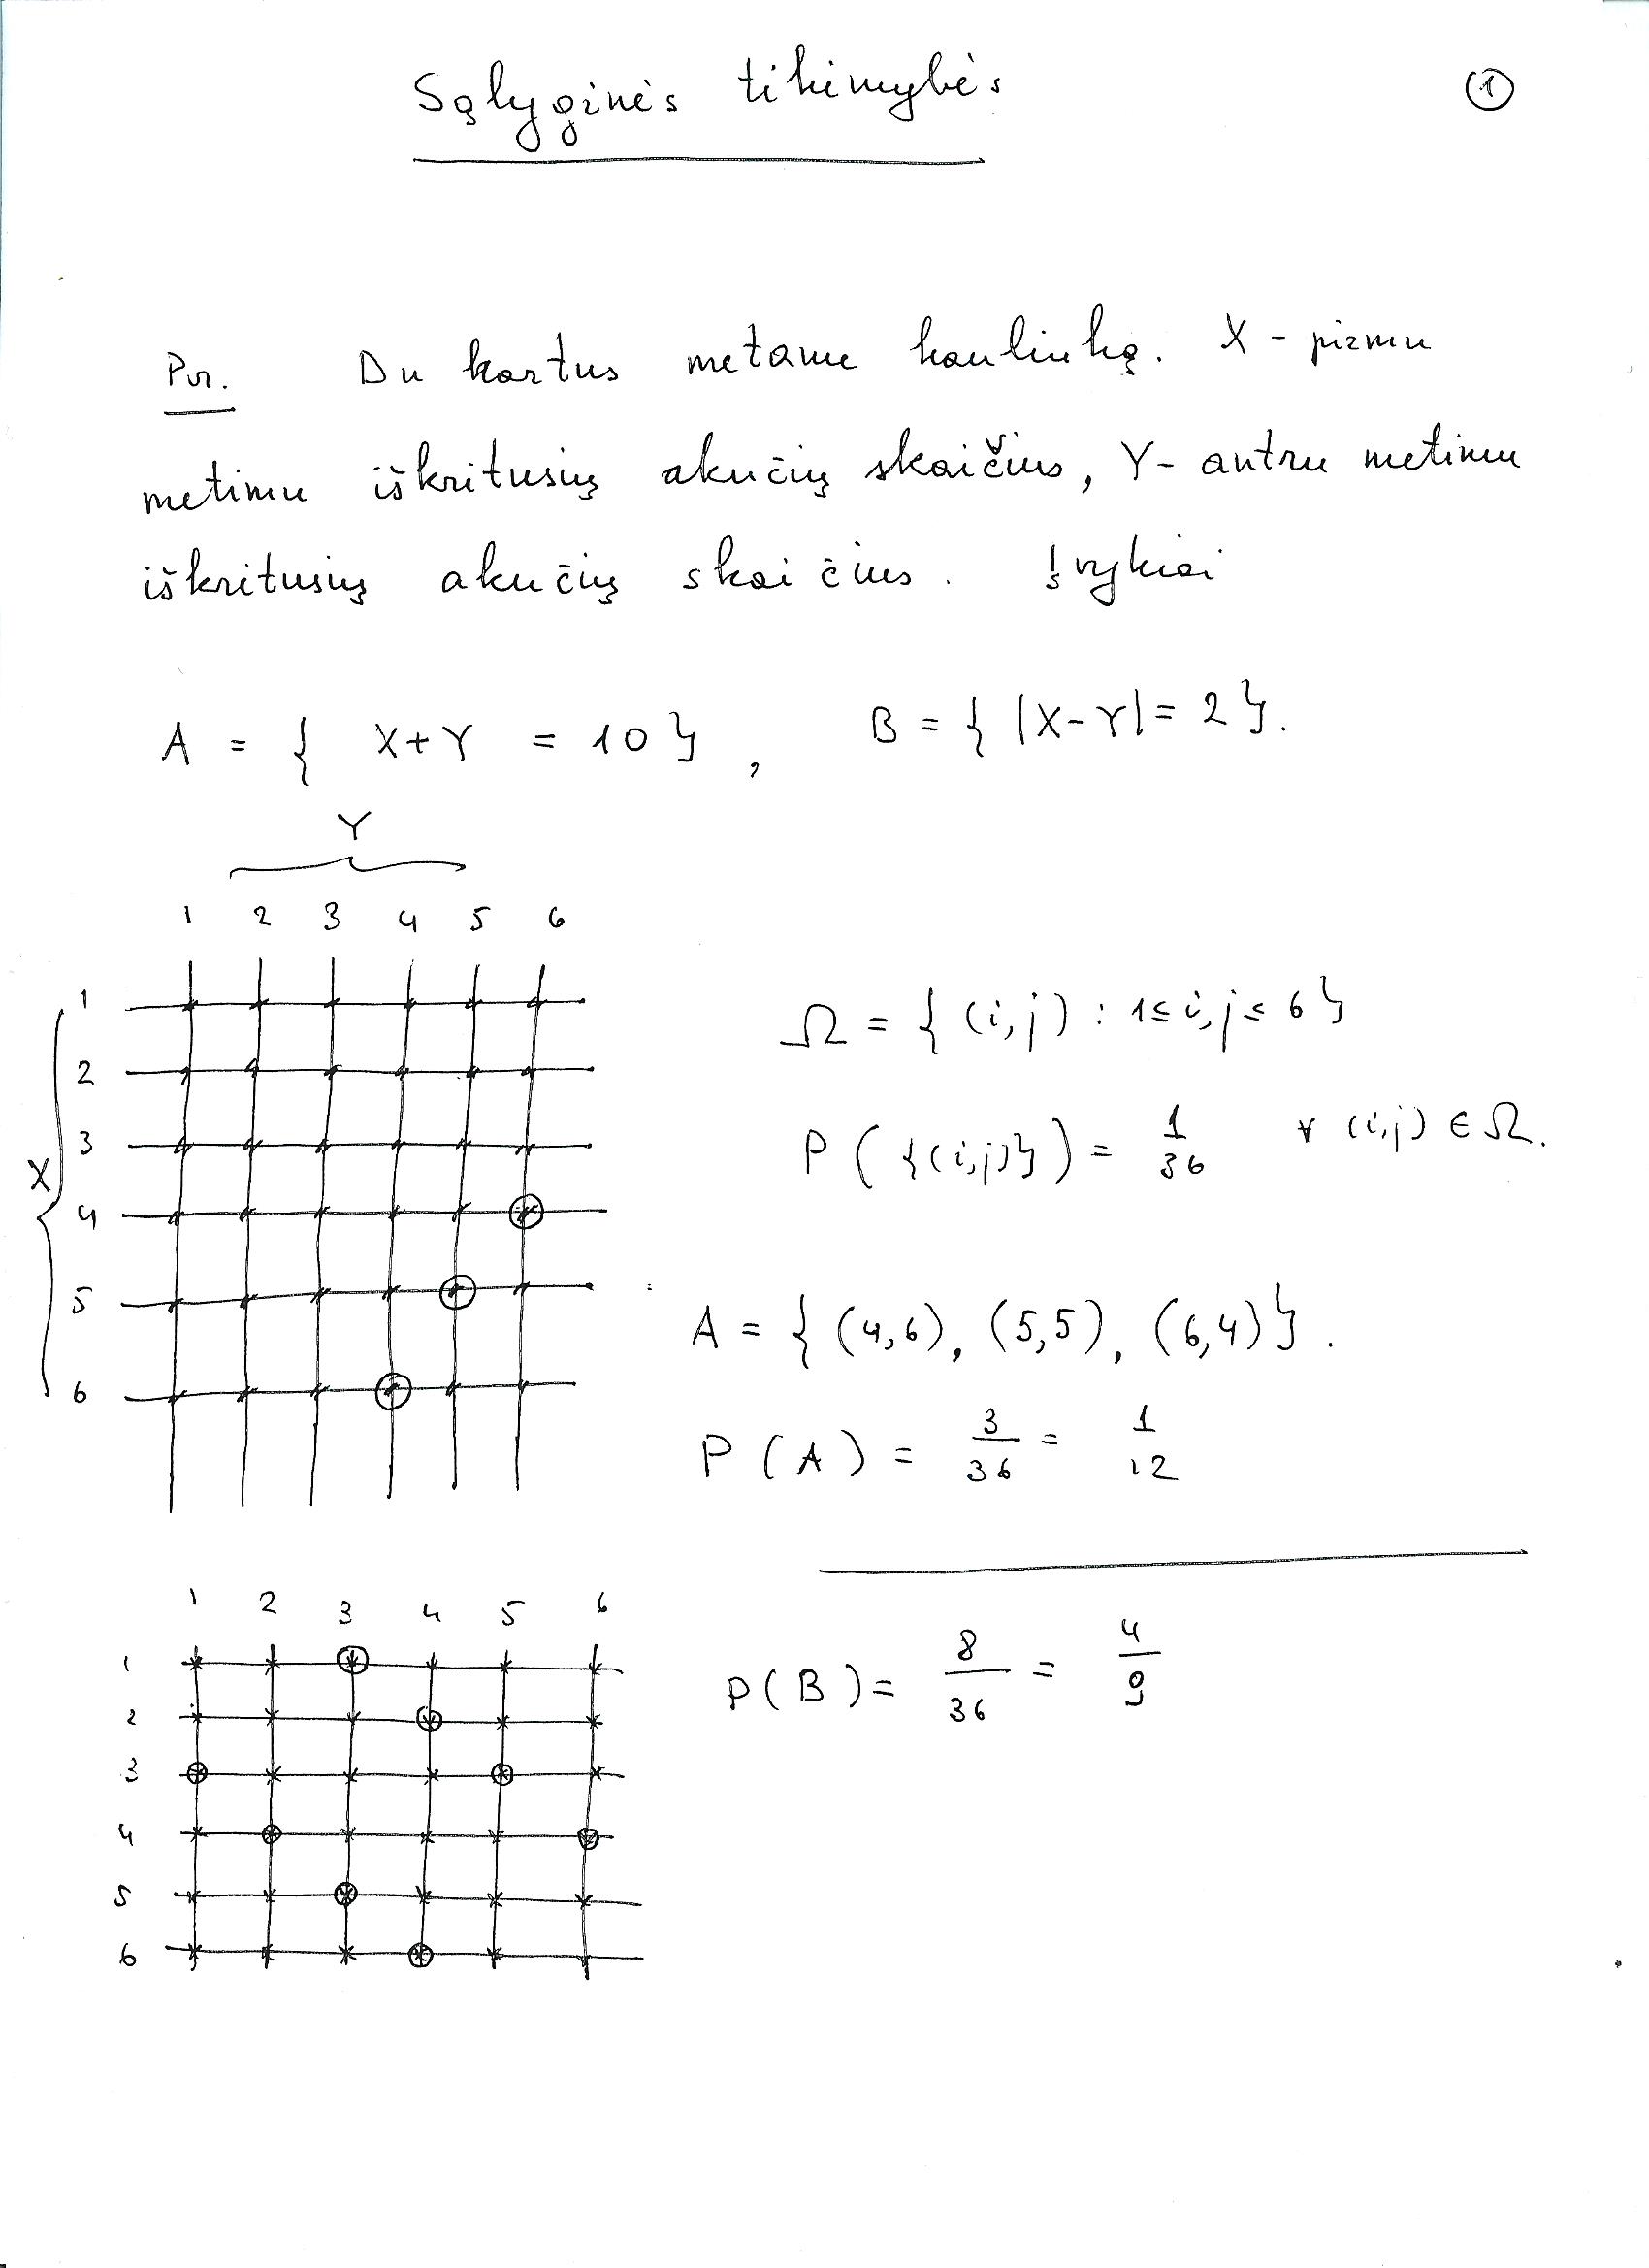 Sąlyginės tikimybės
1
Pvz. Du kartus metame kauliuką. X - pirmu
metimu iškritusių akučių skaičius, Y - antru metimu
iškritusių akučių skaičius. Įvykiai
A = { X+Y = 10 } , B = { |X-Y| = 2 }.
Y
1 2 3 4 5 6
1
2
3
X
4
5
6
Ω = { (i,j) : 1 ≤ i,j ≤ 6 }
P ( {(i,j)} ) = 1/36 ∀ (i,j) ∈ Ω.
A = { (4,6), (5,5), (6,4) } .
P (A) = 3/36 = 1/12
1 2 3 4 5 6
1
2
3
4
5
6
P(B) = 8/36 = 4/9